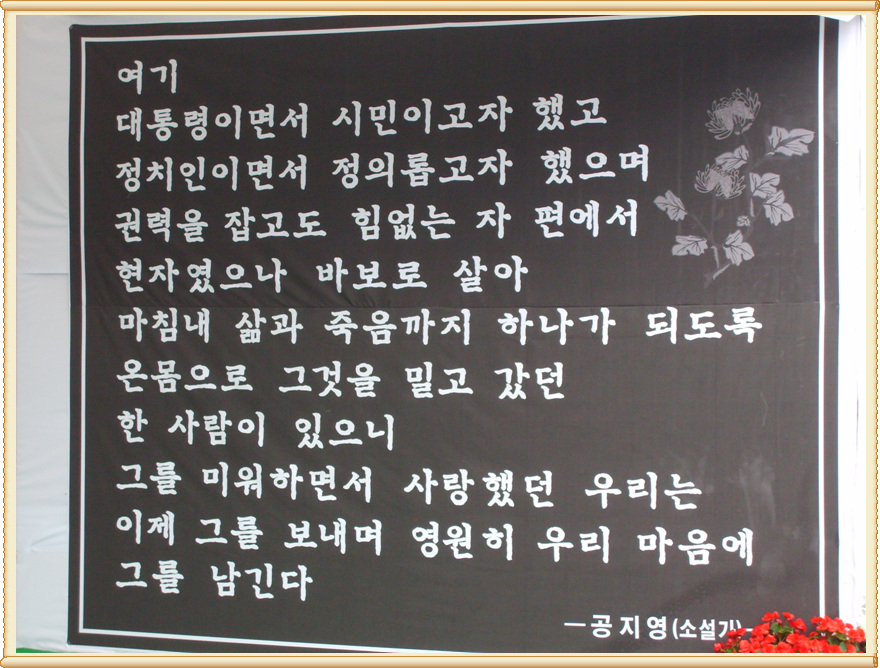 여기
대통령이면서 시민이고자 했고
정치인이면서 정의롭고자 했으며
권력을 잡고도 힘없는 자 편에서
현자였으나 바보로 살아
마침내 삶과 죽음까지 하나가 되도록
온몸으로 그것을 밀고 갔던
한 사람이 있으니
그를 미워하면서 사랑했던 우리는
이제 그를 보내며 영원히 우리 마음에
그를 남긴다
—공지영(소설가)-